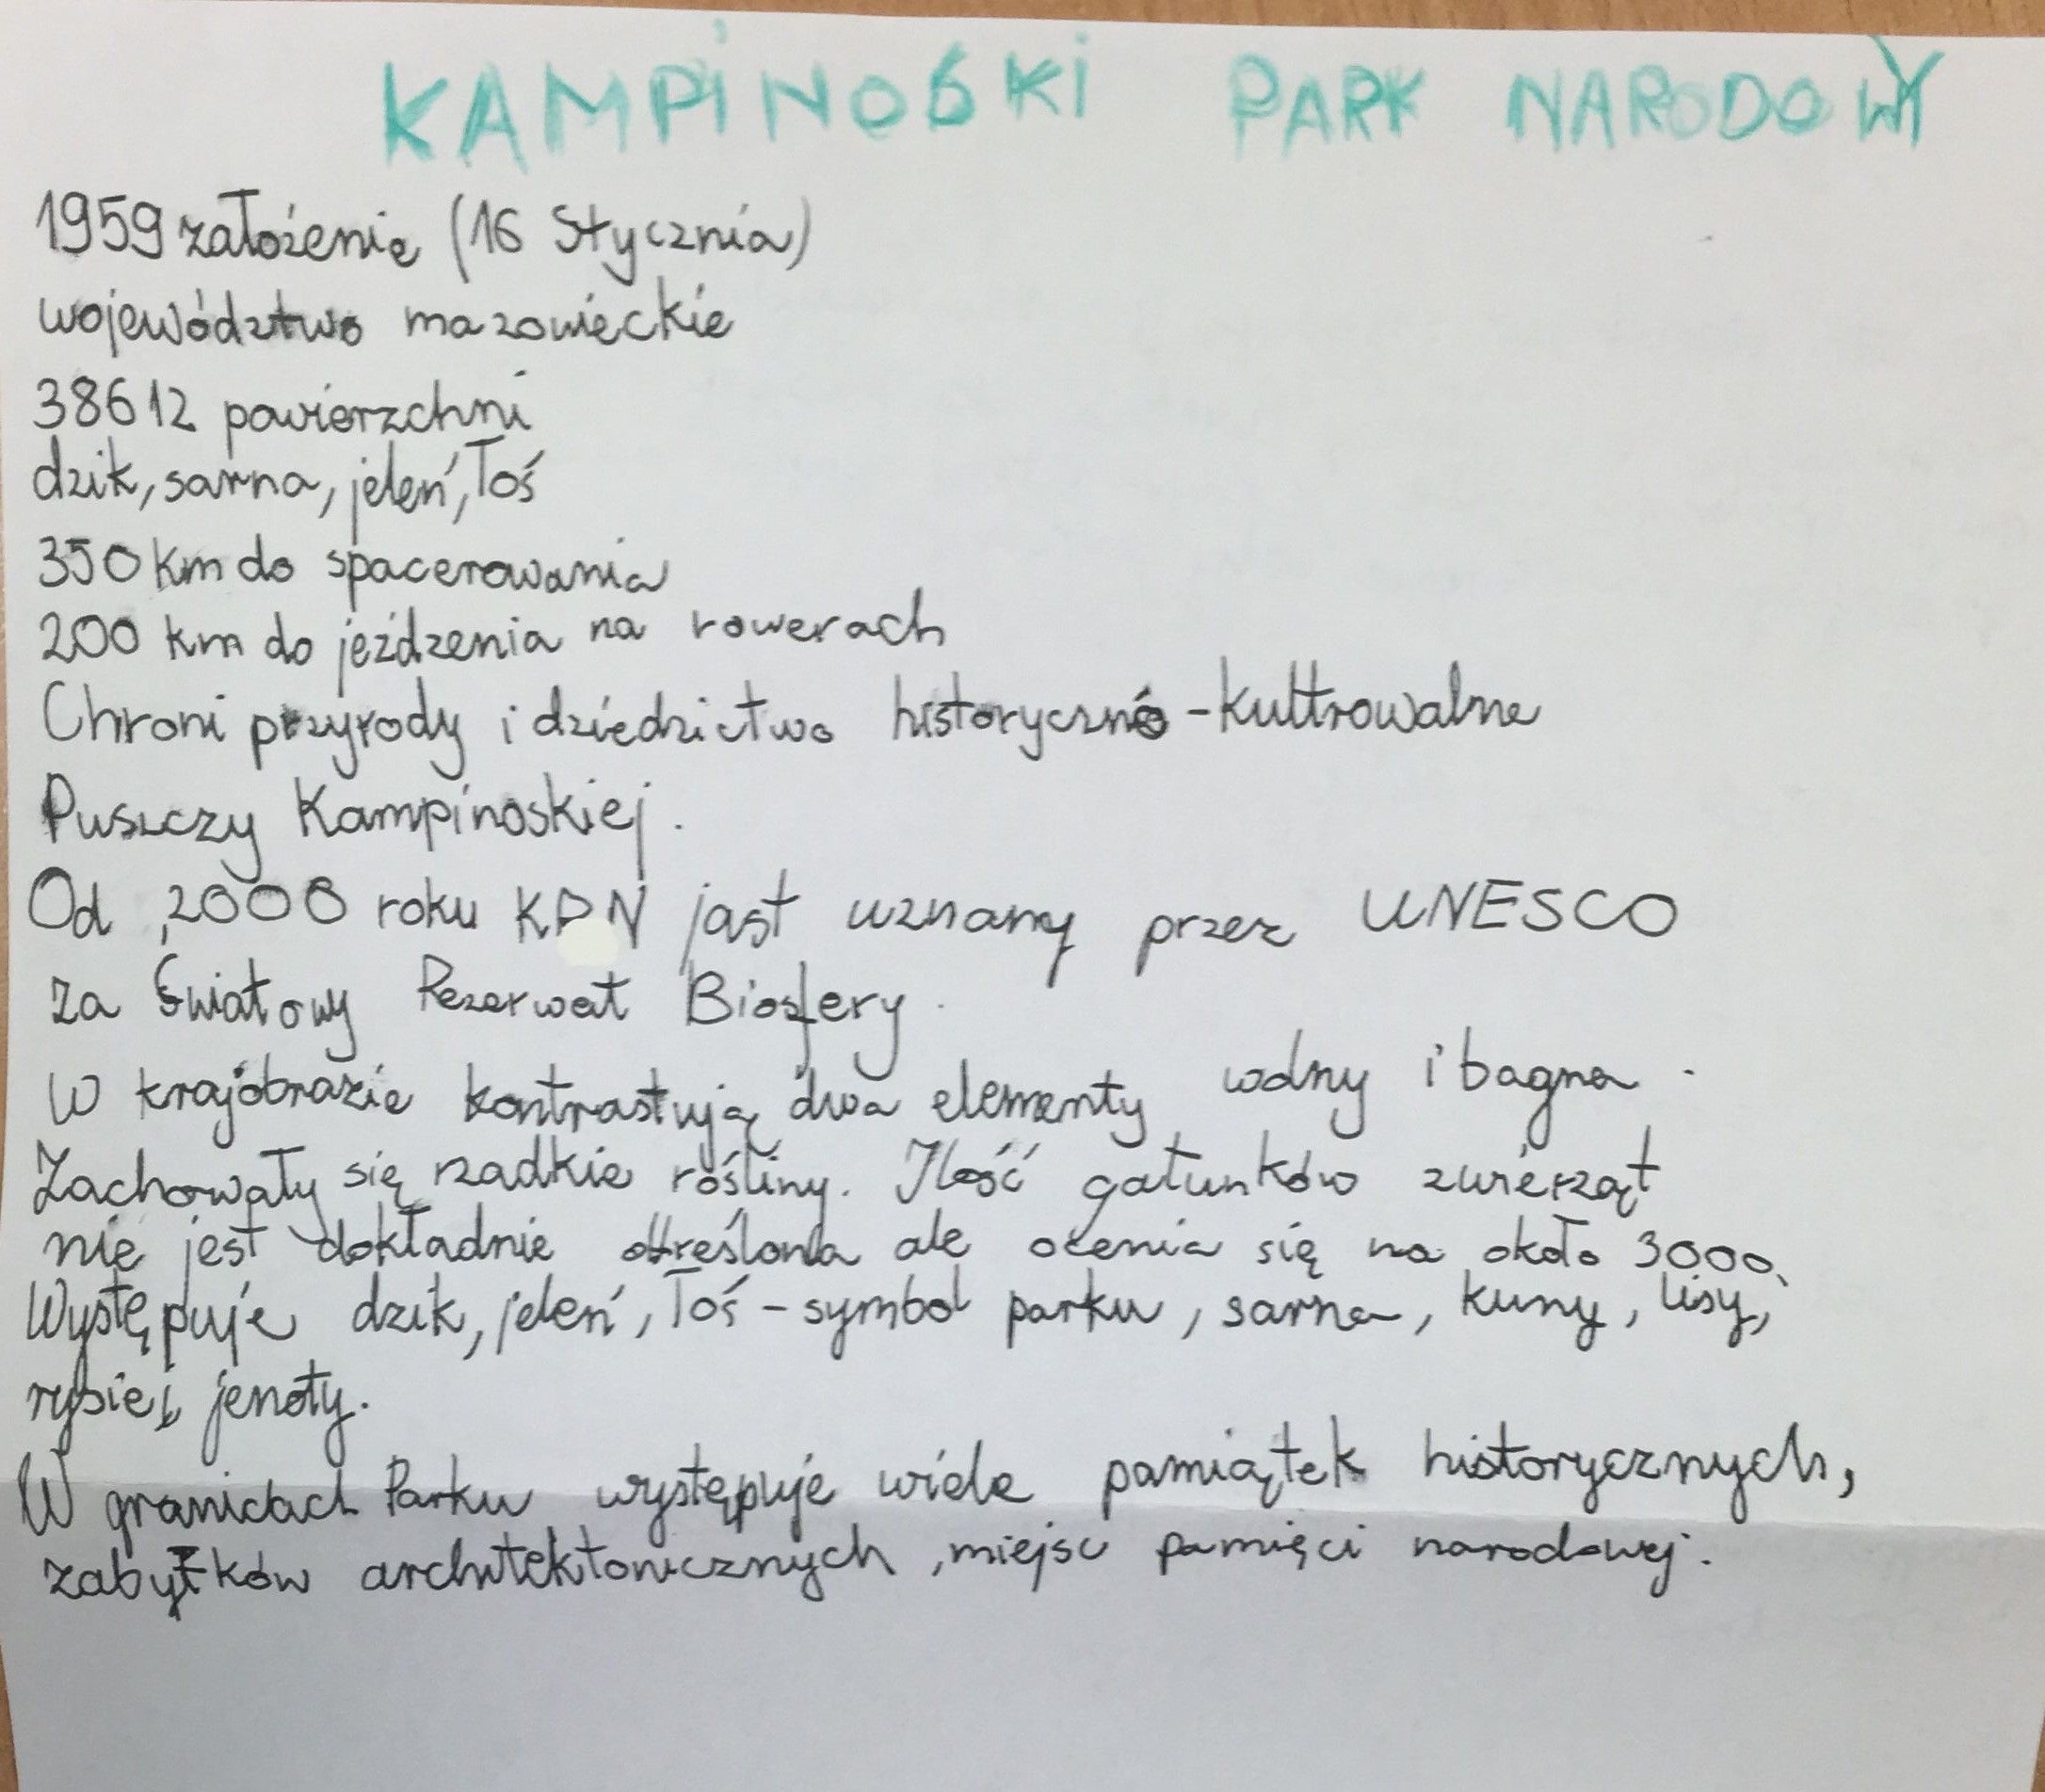 KAMPINOSKI PARK NARODOWY
1959 założenie (16 Stycznia)
województwo mazowieckie
38612 powierzchni
dzik, sarna, jeleń, łoś
350 km do spacerowania
200 km do jeżdzenia na rowerach
Chroni przyrody i dziedzictwo historyczno-kultrowalne
Puszczy Kampinoskiej.
Od 2000 roku KPN jast uznany przez UNESCO
za Światowy Rezerwat Biosfery.
W krajobrazie kontrastują dwa elementy wdny i bagna.
Zachowały się rzadkie rośliny. Ilość gatunków zwierząt
nie jest dokładnie określona ale ocenia się na około 3000.
Występuje dzik, jeleń, łoś - symbol parku, sarna, kuny, lisy,
rysie i jenoty.
W granicach Parku występuje wiele pamiątek historycznych,
zabytków architektonicznych, miejsc pamięci narodowej.